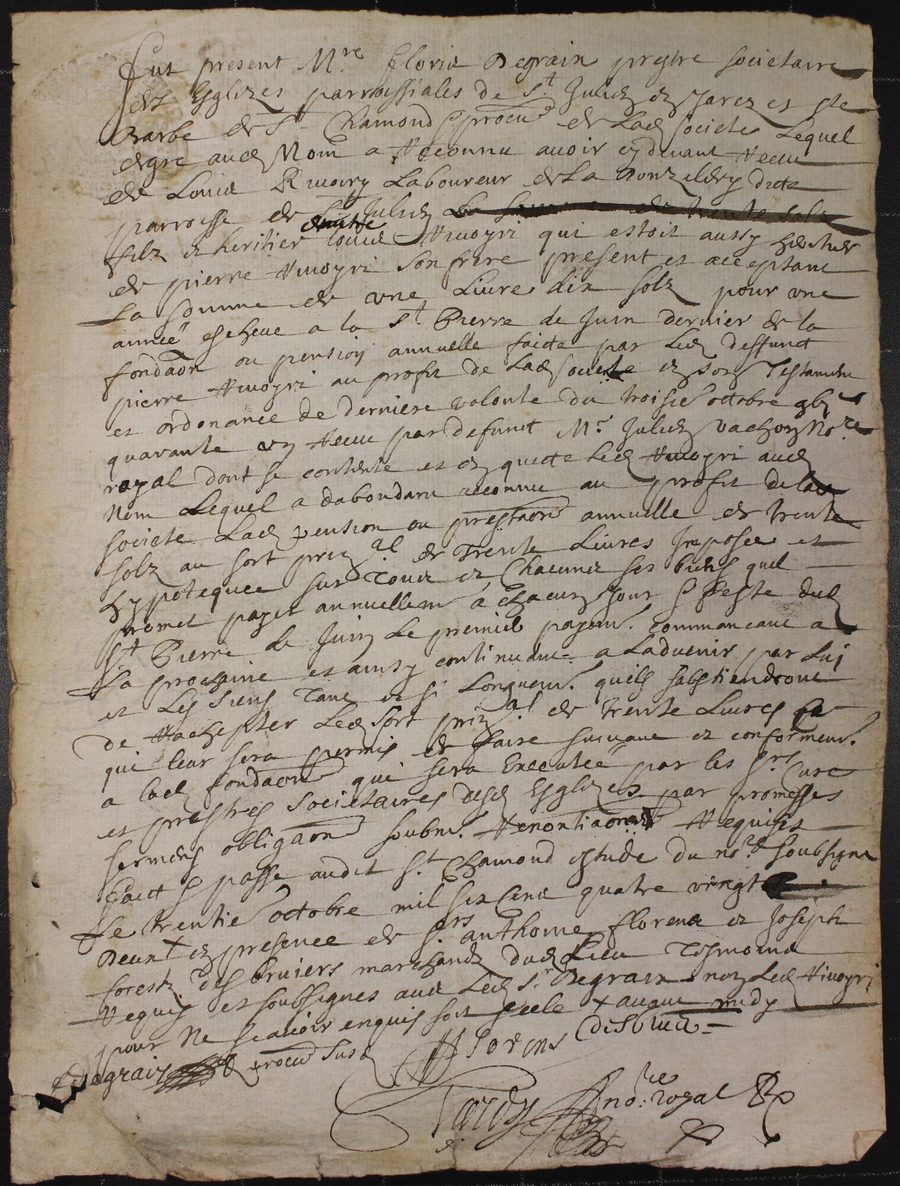 Fut present M.re Florid Degrain prestre societaire
des Esglizes parrossialles de S.t Julien en Jarez et ste
Barbe de S.t Chamond & procu.r de Lad. Societe Lequel
de gre aud. Nom a Reconnu avoir cy devant Receu
de Louis Rivoiry Laboureur de La
parroisse de S.t Julien La somme de trente solz
filz et heritier d'autre Louis Rivoyri qui estoit aussy heritier
de pierre Rivoyri son frere present et acceptant
La somme de une Livre dix solz pour une
année escheue a la S.t Pierre de Juin dernier de la
fondaon ou pension annuelle faicte par Led. deffunct
pierre Rivoyri au profit de Lad. Societe en son Testament
et ordonance de derniere volonte du troisie. octobre
quarante un Receu par defunct M.r Julien Vachon No.re
royal dont se contente et en quitte Led. Rivoyri aud.
Nom Lequel a dabondant reconnu au proffit de lad.
societe Lad. pension ou prestaon annuelle de trente
solz au sort prin.al de Trente Livres Imposee et
hypotequee sur Tous et Chacuns ses biens quil
promet payer annuellem. a Chacun Jour & feste de
S.t Pierre de Juin Le premier payem. commancant a
La prochaine et ainsy continuant a Ladvenir par Lui
et Les Siens Tant et si Longuem. quils
de Rachepter Led. Sort prin.al de Trente Livres
qui leur sera permis de faire suivant et conformem.
a lad. fondaon qui sera Executée par les S.rs Cure
et prestres Societaires desd. Esglizes par promesses
sermens obligaon soubm. Renontiaon Requises
faict & passe audit S.t Chamond estude du no.re soubsigne
Le trentie. octobre mil six Cens quatre vingt
avant et presence de S.rs anthoine florens et Joseph
forest des bruiers marchands dud. Lieu Tesmoins
Requis et soussignes avec Led. S.r Degrain non Led. Rivoyri
pour ne scavoir enquis soit scele x avant midy
Degrain procu. susd. Florens Desbruie
Tardy no.re royal